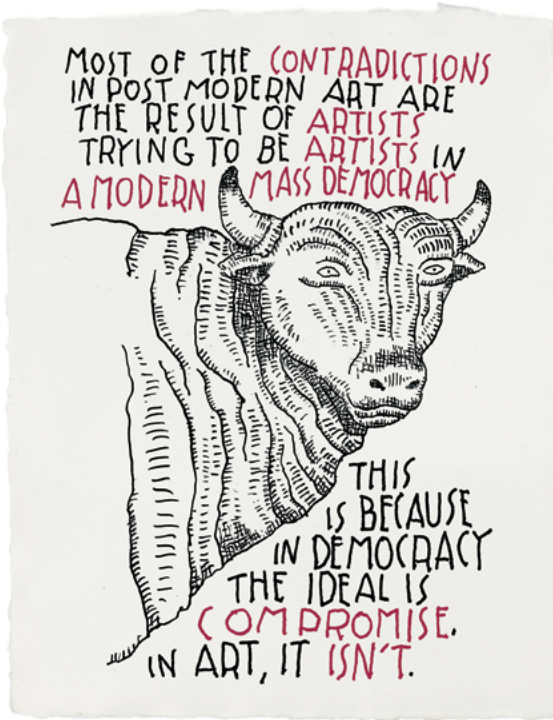 MOST OF THE CONTRADICTIONS
IN POST MODERN ART ARE
THE RESULT OF ARTISTS
TRYING TO BE ARTISTS IN
A MODERN MASS DEMOCRACY
THIS
IS BECAUSE
IN DEMOCRACY
THE IDEAL IS
COMPROMISE.
IN ART, IT ISN'T.